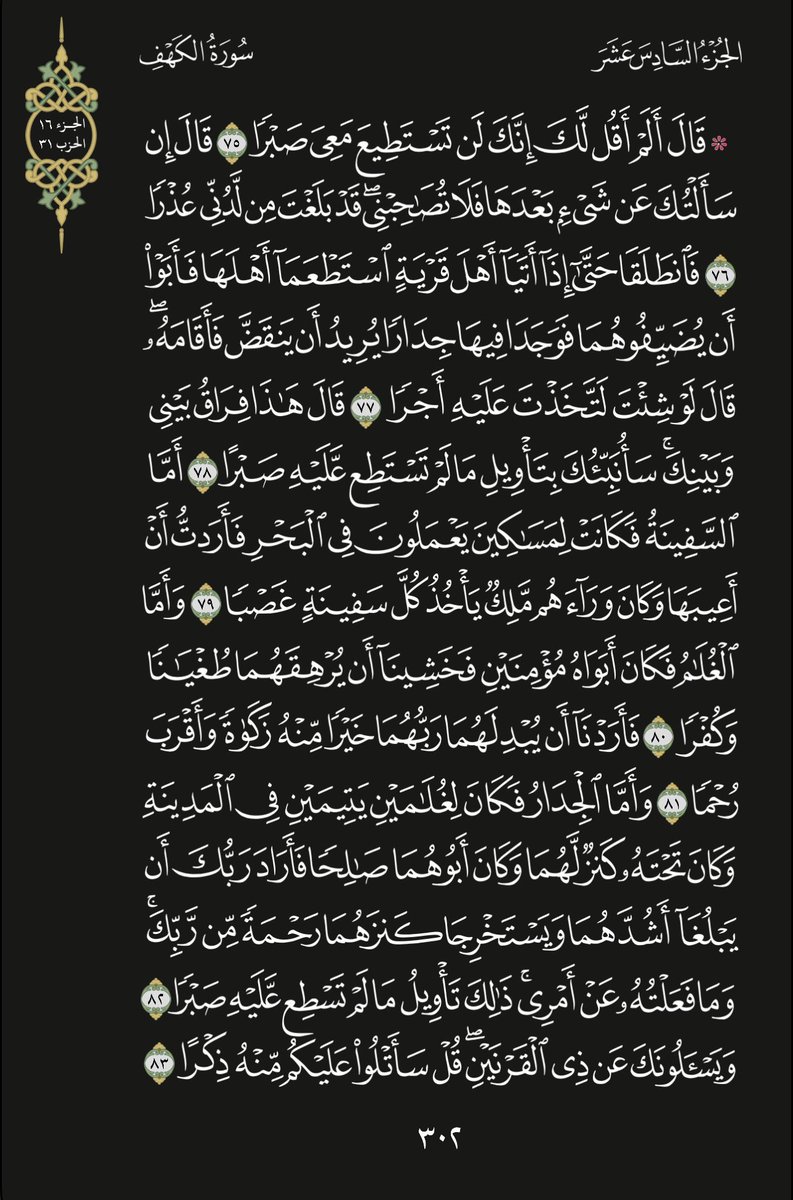 الجُزْءُ السَّادِسَ عَشَرَ
سُورَةُ الكَهْفِ
الجزء ١٦
الحزب ٣١
۞ قَالَ أَلَمْ أَقُل لَّكَ إِنَّكَ لَن تَسْتَطِيعَ مَعِىَ صَبْرًا ٧٥ قَالَ إِن
سَأَلْتُكَ عَن شَىْءٍۭ بَعْدَهَا فَلَا تُصَٰحِبْنِىۖ قَدْ بَلَغْتَ مِن لَّدُنِّى عُذْرًا
٧٦ فَٱنطَلَقَا حَتَّىٰٓ إِذَآ أَتَيَآ أَهْلَ قَرْيَةٍ ٱسْتَطْعَمَآ أَهْلَهَا فَأَبَوْا۟
أَن يُضَيِّفُوهُمَا فَوَجَدَا فِيهَا جِدَارًا يُرِيدُ أَن يَنقَضَّ فَأَقَامَهُۥۖ
قَالَ لَوْ شِئْتَ لَتَّخَذْتَ عَلَيْهِ أَجْرًا ٧٧ قَالَ هَٰذَا فِرَاقُ بَيْنِى
وَبَيْنِكَۚ سَأُنَبِّئُكَ بِتَأْوِيلِ مَا لَمْ تَسْتَطِع عَّلَيْهِ صَبْرًا ٧٨ أَمَّا
ٱلسَّفِينَةُ فَكَانَتْ لِمَسَٰكِينَ يَعْمَلُونَ فِى ٱلْبَحْرِ فَأَرَدتُّ أَنْ
أَعِيبَهَا وَكَانَ وَرَآءَهُم مَّلِكٌ يَأْخُذُ كُلَّ سَفِينَةٍ غَصْبًا ٧٩ وَأَمَّا
ٱلْغُلَٰمُ فَكَانَ أَبَوَاهُ مُؤْمِنَيْنِ فَخَشِينَآ أَن يُرْهِقَهُمَا طُغْيَٰنًا
وَكُفْرًا ٨٠ فَأَرَدْنَآ أَن يُبْدِلَهُمَا رَبُّهُمَا خَيْرًا مِّنْهُ زَكَوٰةً وَأَقْرَبَ
رُحْمًا ٨١ وَأَمَّا ٱلْجِدَارُ فَكَانَ لِغُلَٰمَيْنِ يَتِيمَيْنِ فِى ٱلْمَدِينَةِ
وَكَانَ تَحْتَهُۥ كَنزٌ لَّهُمَا وَكَانَ أَبُوهُمَا صَٰلِحًا فَأَرَادَ رَبُّكَ أَن
يَبْلُغَآ أَشُدَّهُمَا وَيَسْتَخْرِجَا كَنزَهُمَا رَحْمَةً مِّن رَّبِّكَۚ
وَمَا فَعَلْتُهُۥ عَنْ أَمْرِىۚ ذَٰلِكَ تَأْوِيلُ مَا لَمْ تَسْطِع عَّلَيْهِ صَبْرًا ٨٢
وَيَسْـَٔلُونَكَ عَن ذِى ٱلْقَرْنَيْنِۖ قُلْ سَأَتْلُوا۟ عَلَيْكُم مِّنْهُ ذِكْرًا ٨٣
٣٠٢